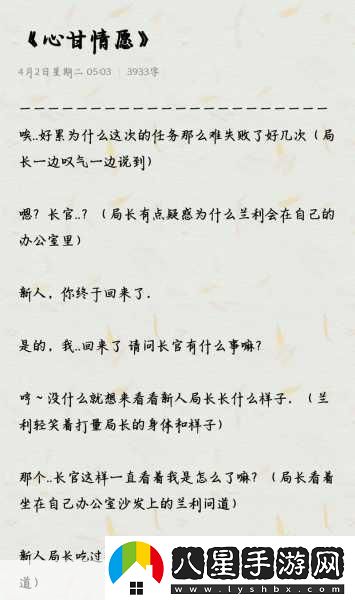 《心甘情愿》
4月2日星期二 05:03 | 3933字
———————————————————————
唉..好累为什么这次的任务那么难失败了好几次（局
长一边叹气一边说到）
嗯？长官..？（局长有点疑惑为什么兰利会在自己的
办公室里）
新人，你终于回来了.
是的，我..回来了 请问长官有什么事嘛？
哼～没什么就想来看看新人局长长什么样子.（兰
利轻笑着打量局长的身体和样子）
那个..长官这样一直看着我是怎么了嘛？（局长看着
坐在自己办公室沙发上的兰利问道）
新人局长吃过
道）
八星手游网
www.lyshbx.com